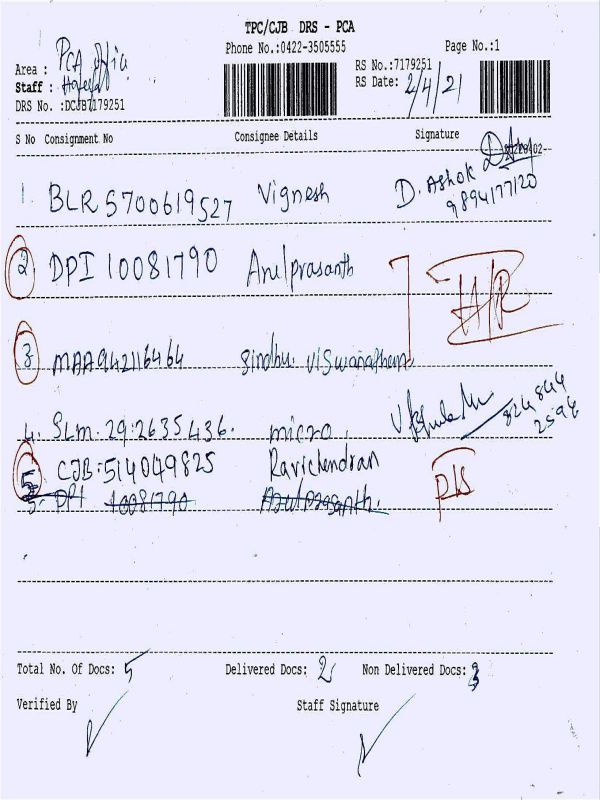 TPC/CJB DRS - PCA
Phone No.:0422-3505555 Page No.:1
Area : PCA Office RS No.:7179251
Staff : RS Date: 2/4/21
DRS No. :DCJB7179251
S No Consignment No Consignee Details Signature
1. BLR 5700619527 Vignesh D. Ashok 9894177120
2. DPI 10081790 Arulprasanth
3 MAA942116464 Sindhu Viswanathan
4. SLM. 29.2635436. micro. 824844 2596
5 CJB: 514049825 Ravichendran
5. DPI 10081790 Arulprasanth.
Total No. Of Docs: 5 Delivered Docs: 2 Non Delivered Docs: 3
Verified By Staff Signature